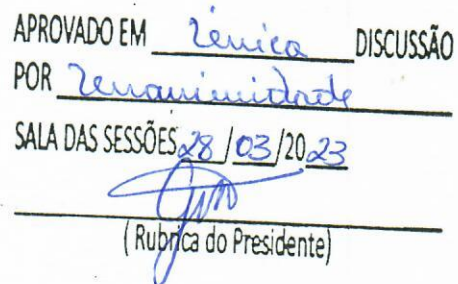 APROVADO EM única DISCUSSÃO
POR unanimidade
SALA DAS SESSÕES 28/03/2023
(Rubrica do Presidente)